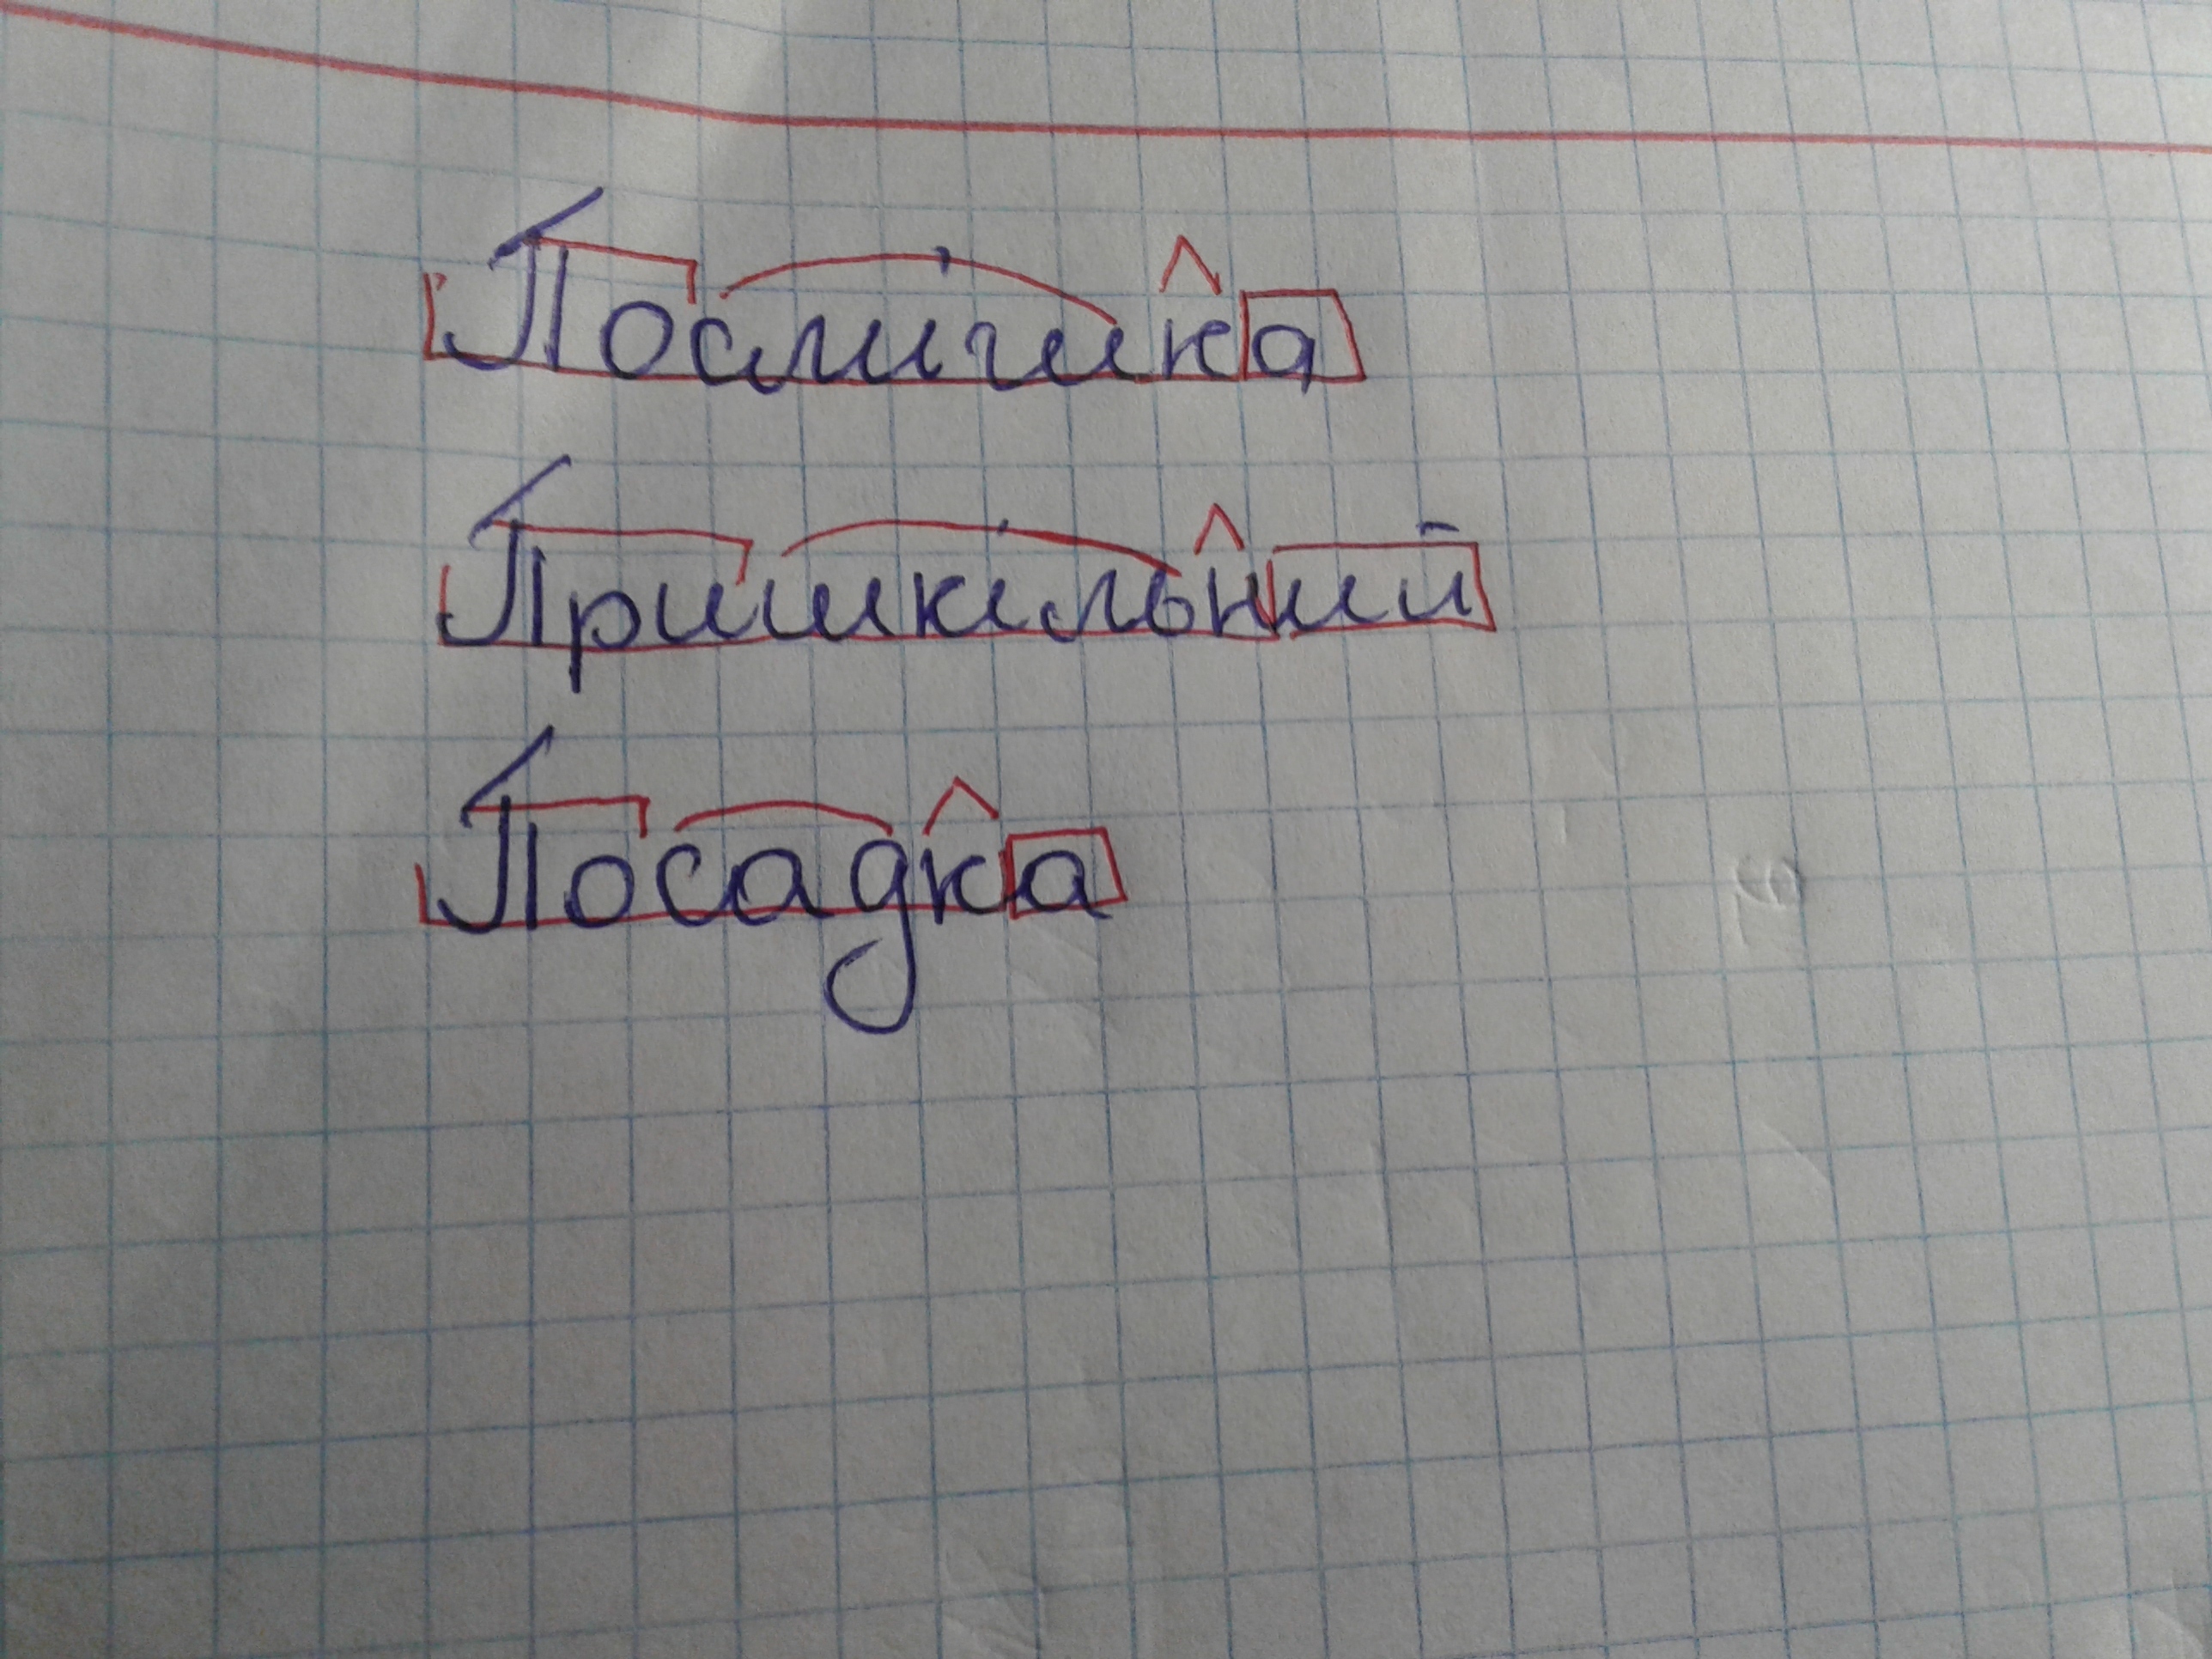 Посмішка
Пришкільний
Посадка